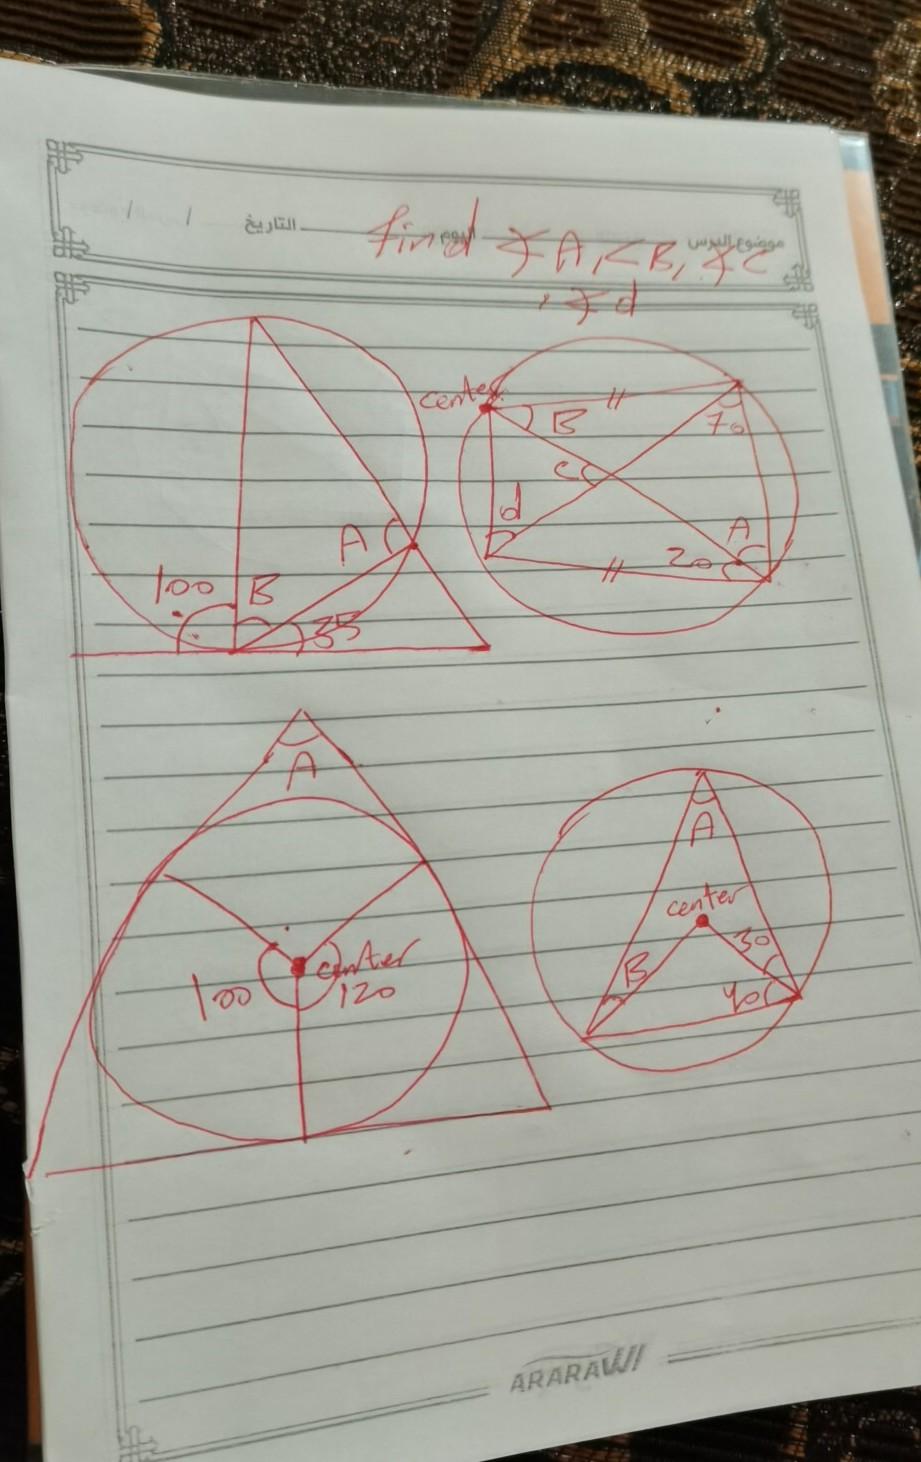 التاريخ
اليوم
موضوع الدرس
find ∢A, <B, ∢C
, ∢d
center
B
70
C
A
100
B
d
A
20
35
A
center
A
center
30
B
100
120
40
ARARAWI